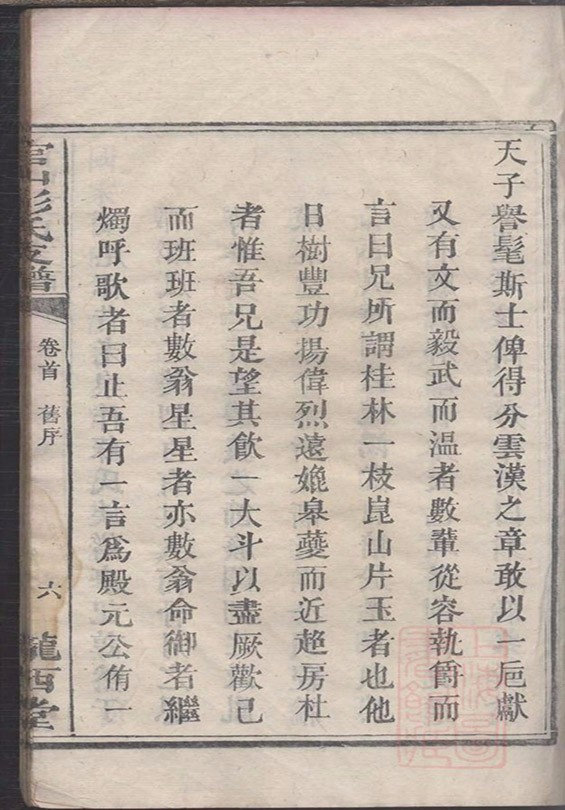 天子譽髦斯士俾得分雲漢之章敢以一巵獻
又有文而毅武而溫者數輩從容執爵而
言曰兄所謂桂林一枝崑山片玉者也他
日樹豐功揚偉烈遠媲皋夔而近趙房杜
者惟吾兄是望其飲一大斗以盡厥歡已
而班班者數翁星星者亦數翁命御者繼
燭呼歌者曰止吾有一言爲殿元公侑一
官山彭氏支譜
卷首 舊序
六
隴西堂